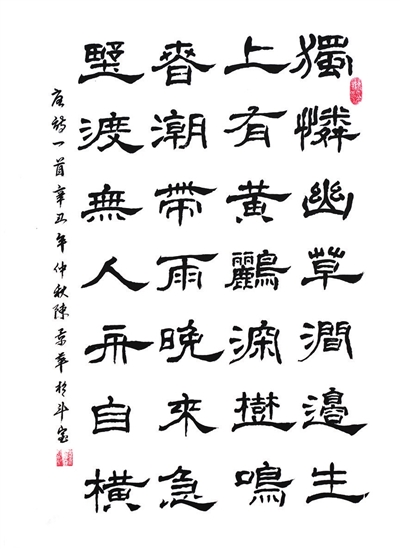 獨憐幽草澗邊生
上有黃鸝深樹鳴
春潮帶雨晚來急
野渡無人舟自橫
唐詩一首辛丑年仲秋陳於斗室